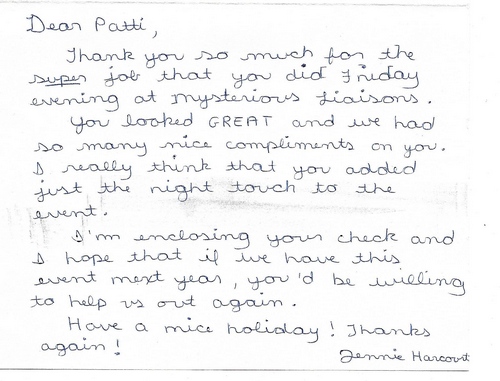 Dear Patti,
Thank you so much for the
super job that you did Friday
evening at Mysterious Liaisons.
You looked GREAT and we had
so many nice compliments on you.
I really think that you added
just the right touch to the
event.
I'm enclosing your check and
I hope that if we have this
event next year, you'd be willing
to help us out again.
Have a nice holiday! Thanks
again!
Jennie Harcourt